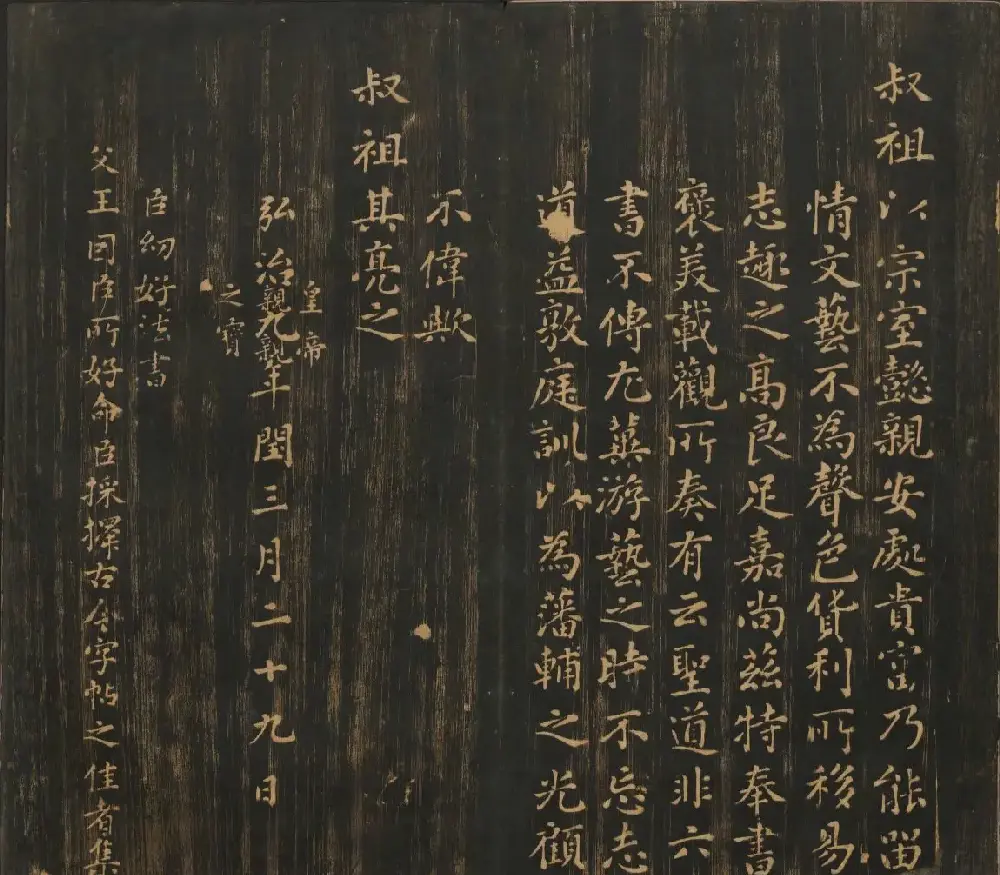 叔祖以宗室懿親安處貴富乃能留
情文藝不為聲色貨利所移易
志趣之高良足嘉尚茲特奉書
褒美載觀所奏有云聖道非六
書不傳尤冀游藝之時不忘志
道益敦庭訓以為藩輔之光顧
不偉歟
叔祖其亮之
皇帝
弘治九年閏三月二十九日
親親
之寶
臣幼好法書
父王因臣所好命臣採擇古今字帖之佳者集